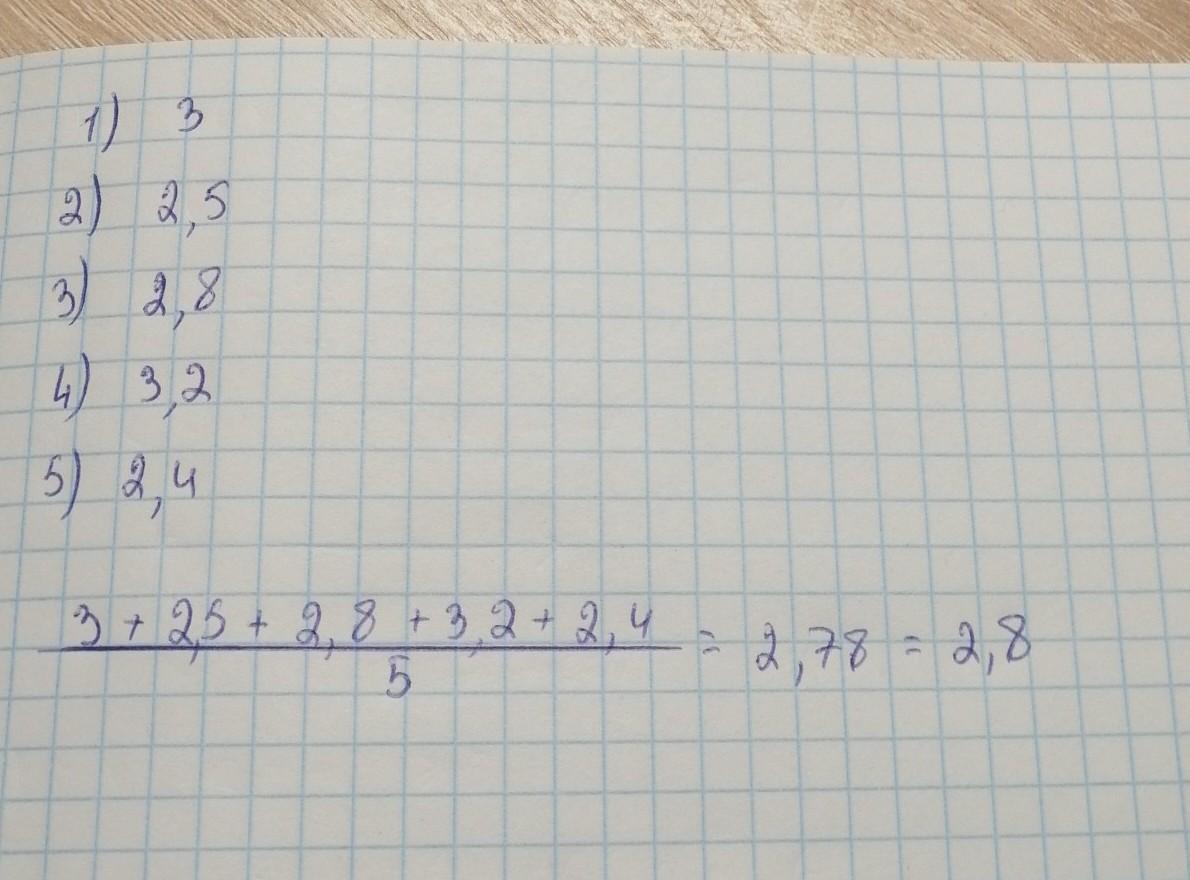 1) 3
2) 2,5
3) 2,8
4) 3,2
5) 2,4
3 + 2,5 + 2,8 + 3,2 + 2,4 = 2,78 = 2,8
5